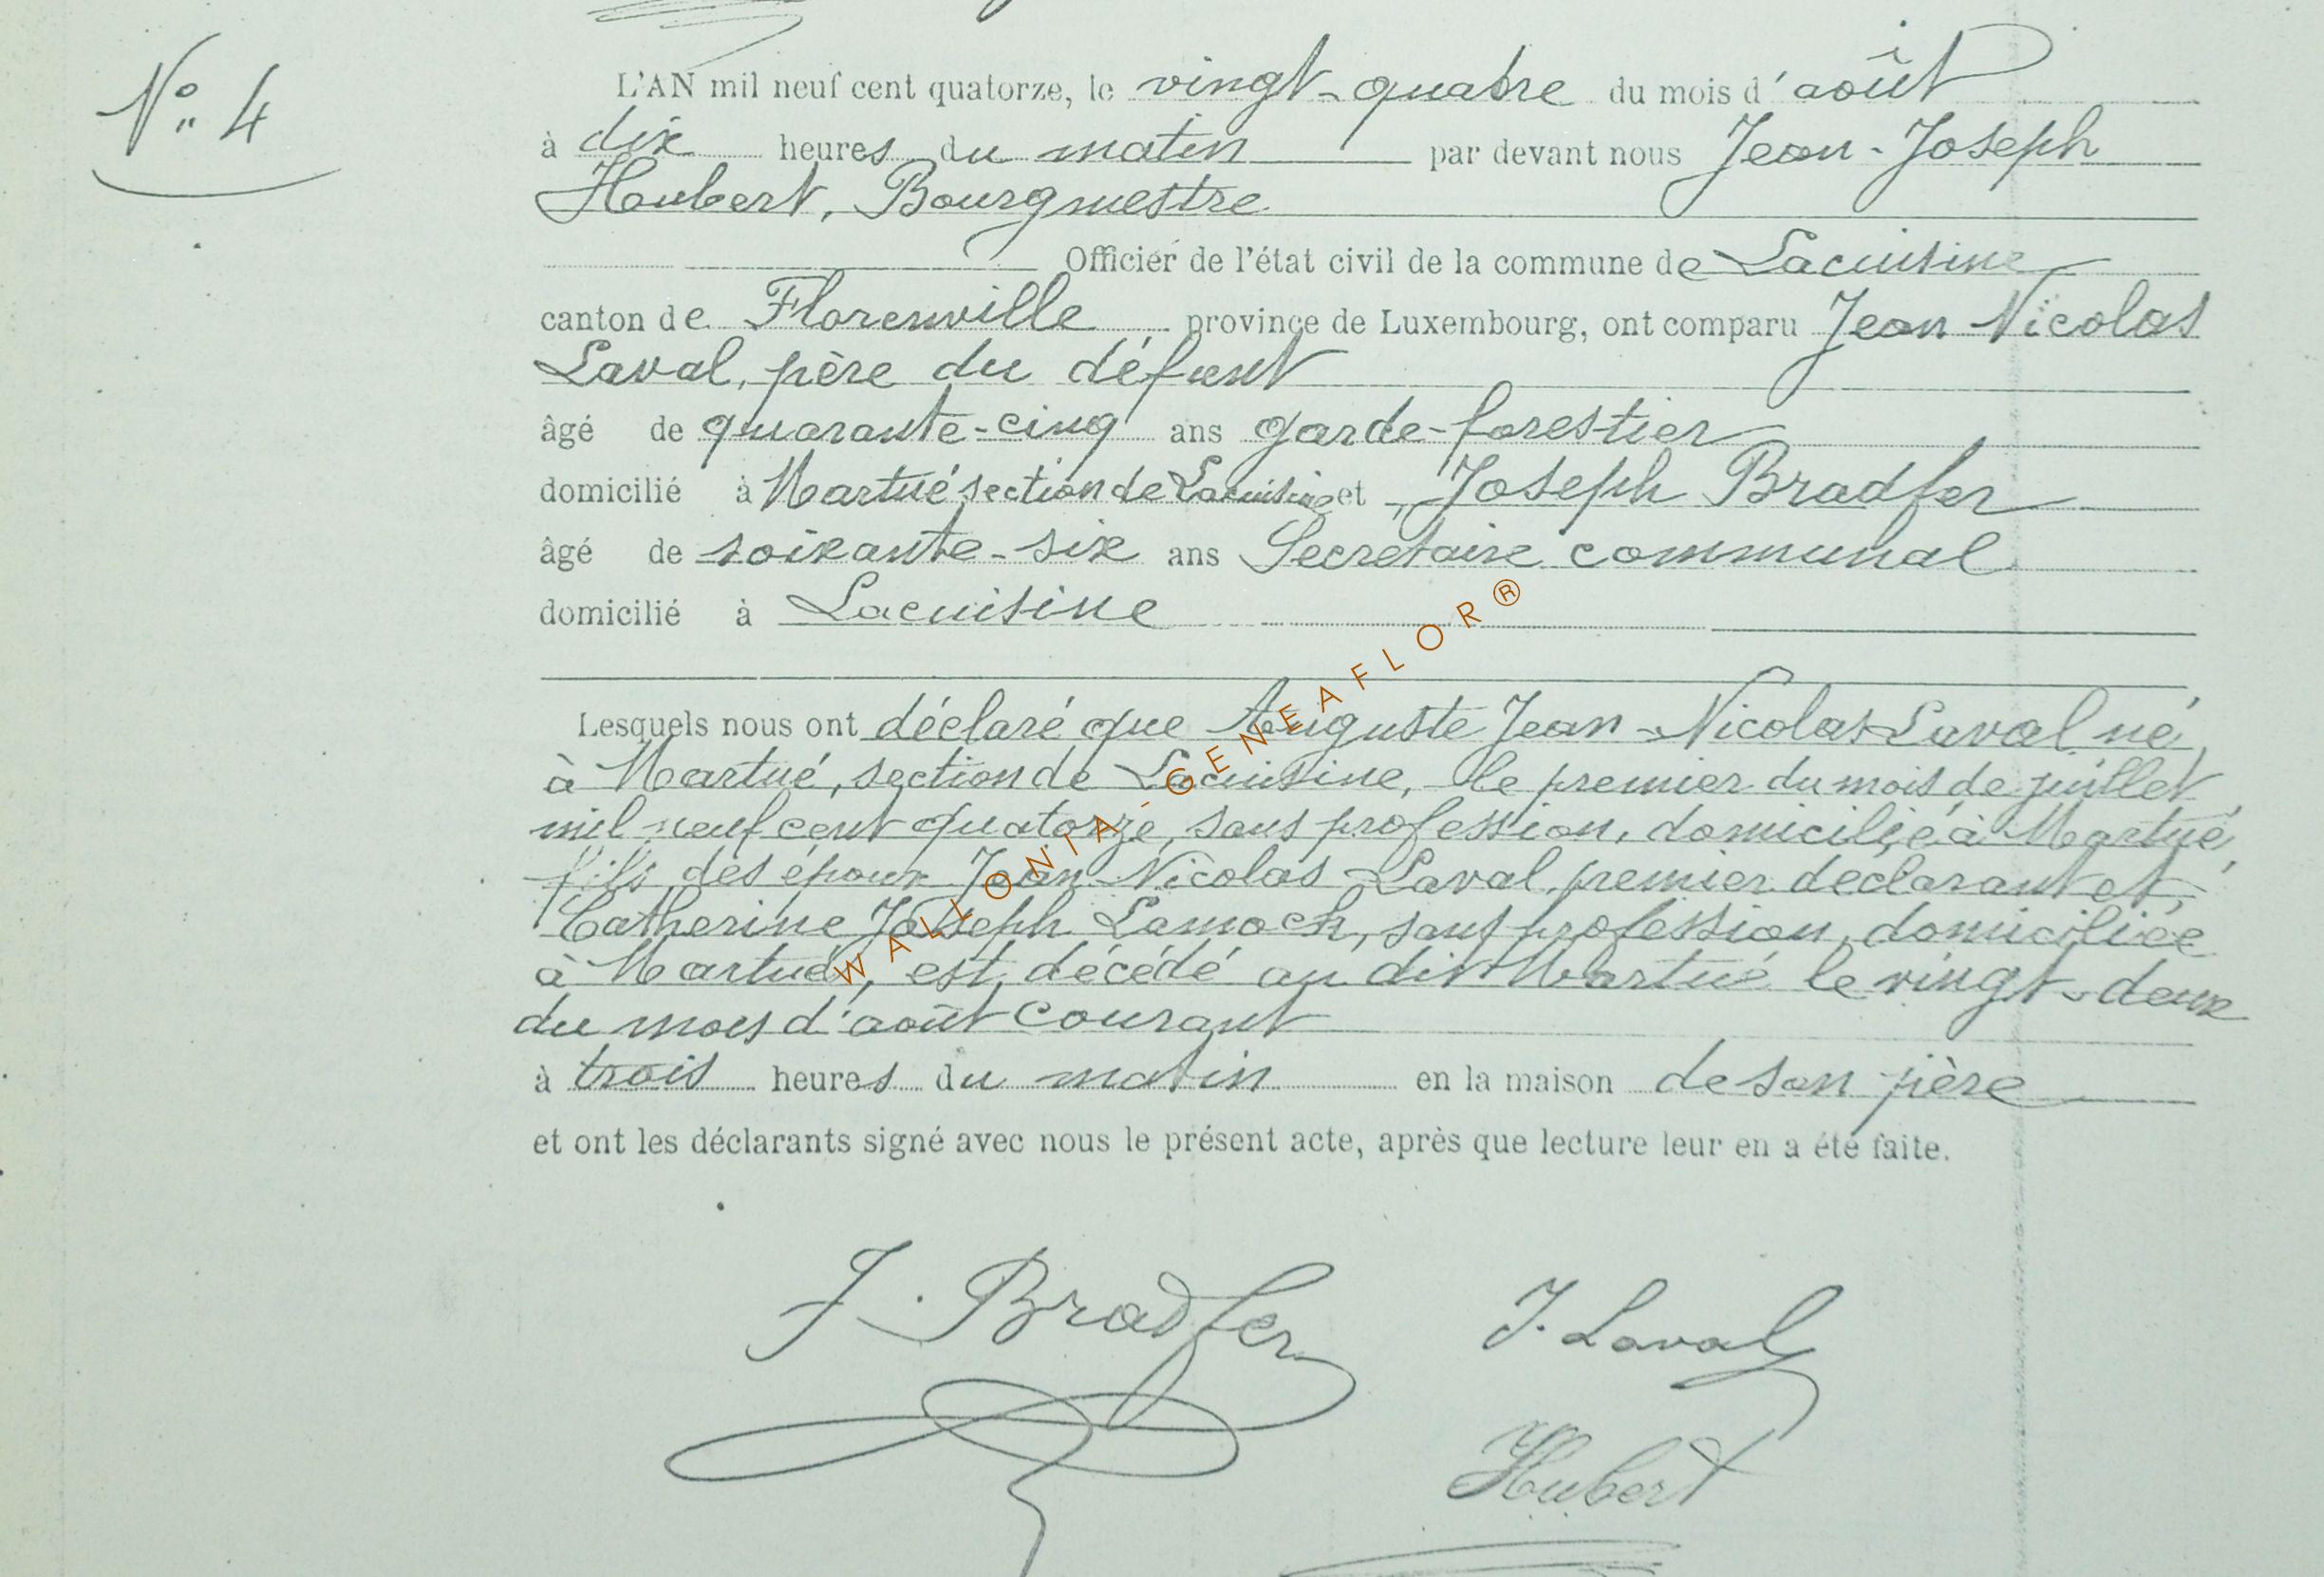 N° 4
L'AN mil neuf cent quatorze, le vingt-quatre du mois d'août
à dix heures du matin par devant nous Jean-Joseph
Hubert, Bourgmestre
Officier de l'état civil de la commune de Lacuisine
canton de Florenville province de Luxembourg, ont comparu Jean Nicolas
Laval, père du défunt
âgé de quarante-cinq ans garde-forestier
domicilié à Martué section de Lacuisine et Joseph Bradfer
âgé de soixante-six ans Secrétaire communal
domicilié à Lacuisine
Lesquels nous ont déclaré que Auguste Jean-Nicolas Laval né
à Martué, section de Lacuisine, le premier du mois de juillet
mil neuf cent quatorze, sans profession, domicilié à Martué,
fils des époux Jean Nicolas Laval, premier déclarant et
Catherine Joseph Lamock, sans profession, domiciliée
à Martué, est décédé au dit Martué le vingt-deux
du mois d'août courant
à trois heures du matin en la maison de son père
et ont les déclarants signé avec nous le présent acte, après que lecture leur en a été faite.
J. Bradfer J. Laval
Hubert
WALLONIA-GENEAFLOR®